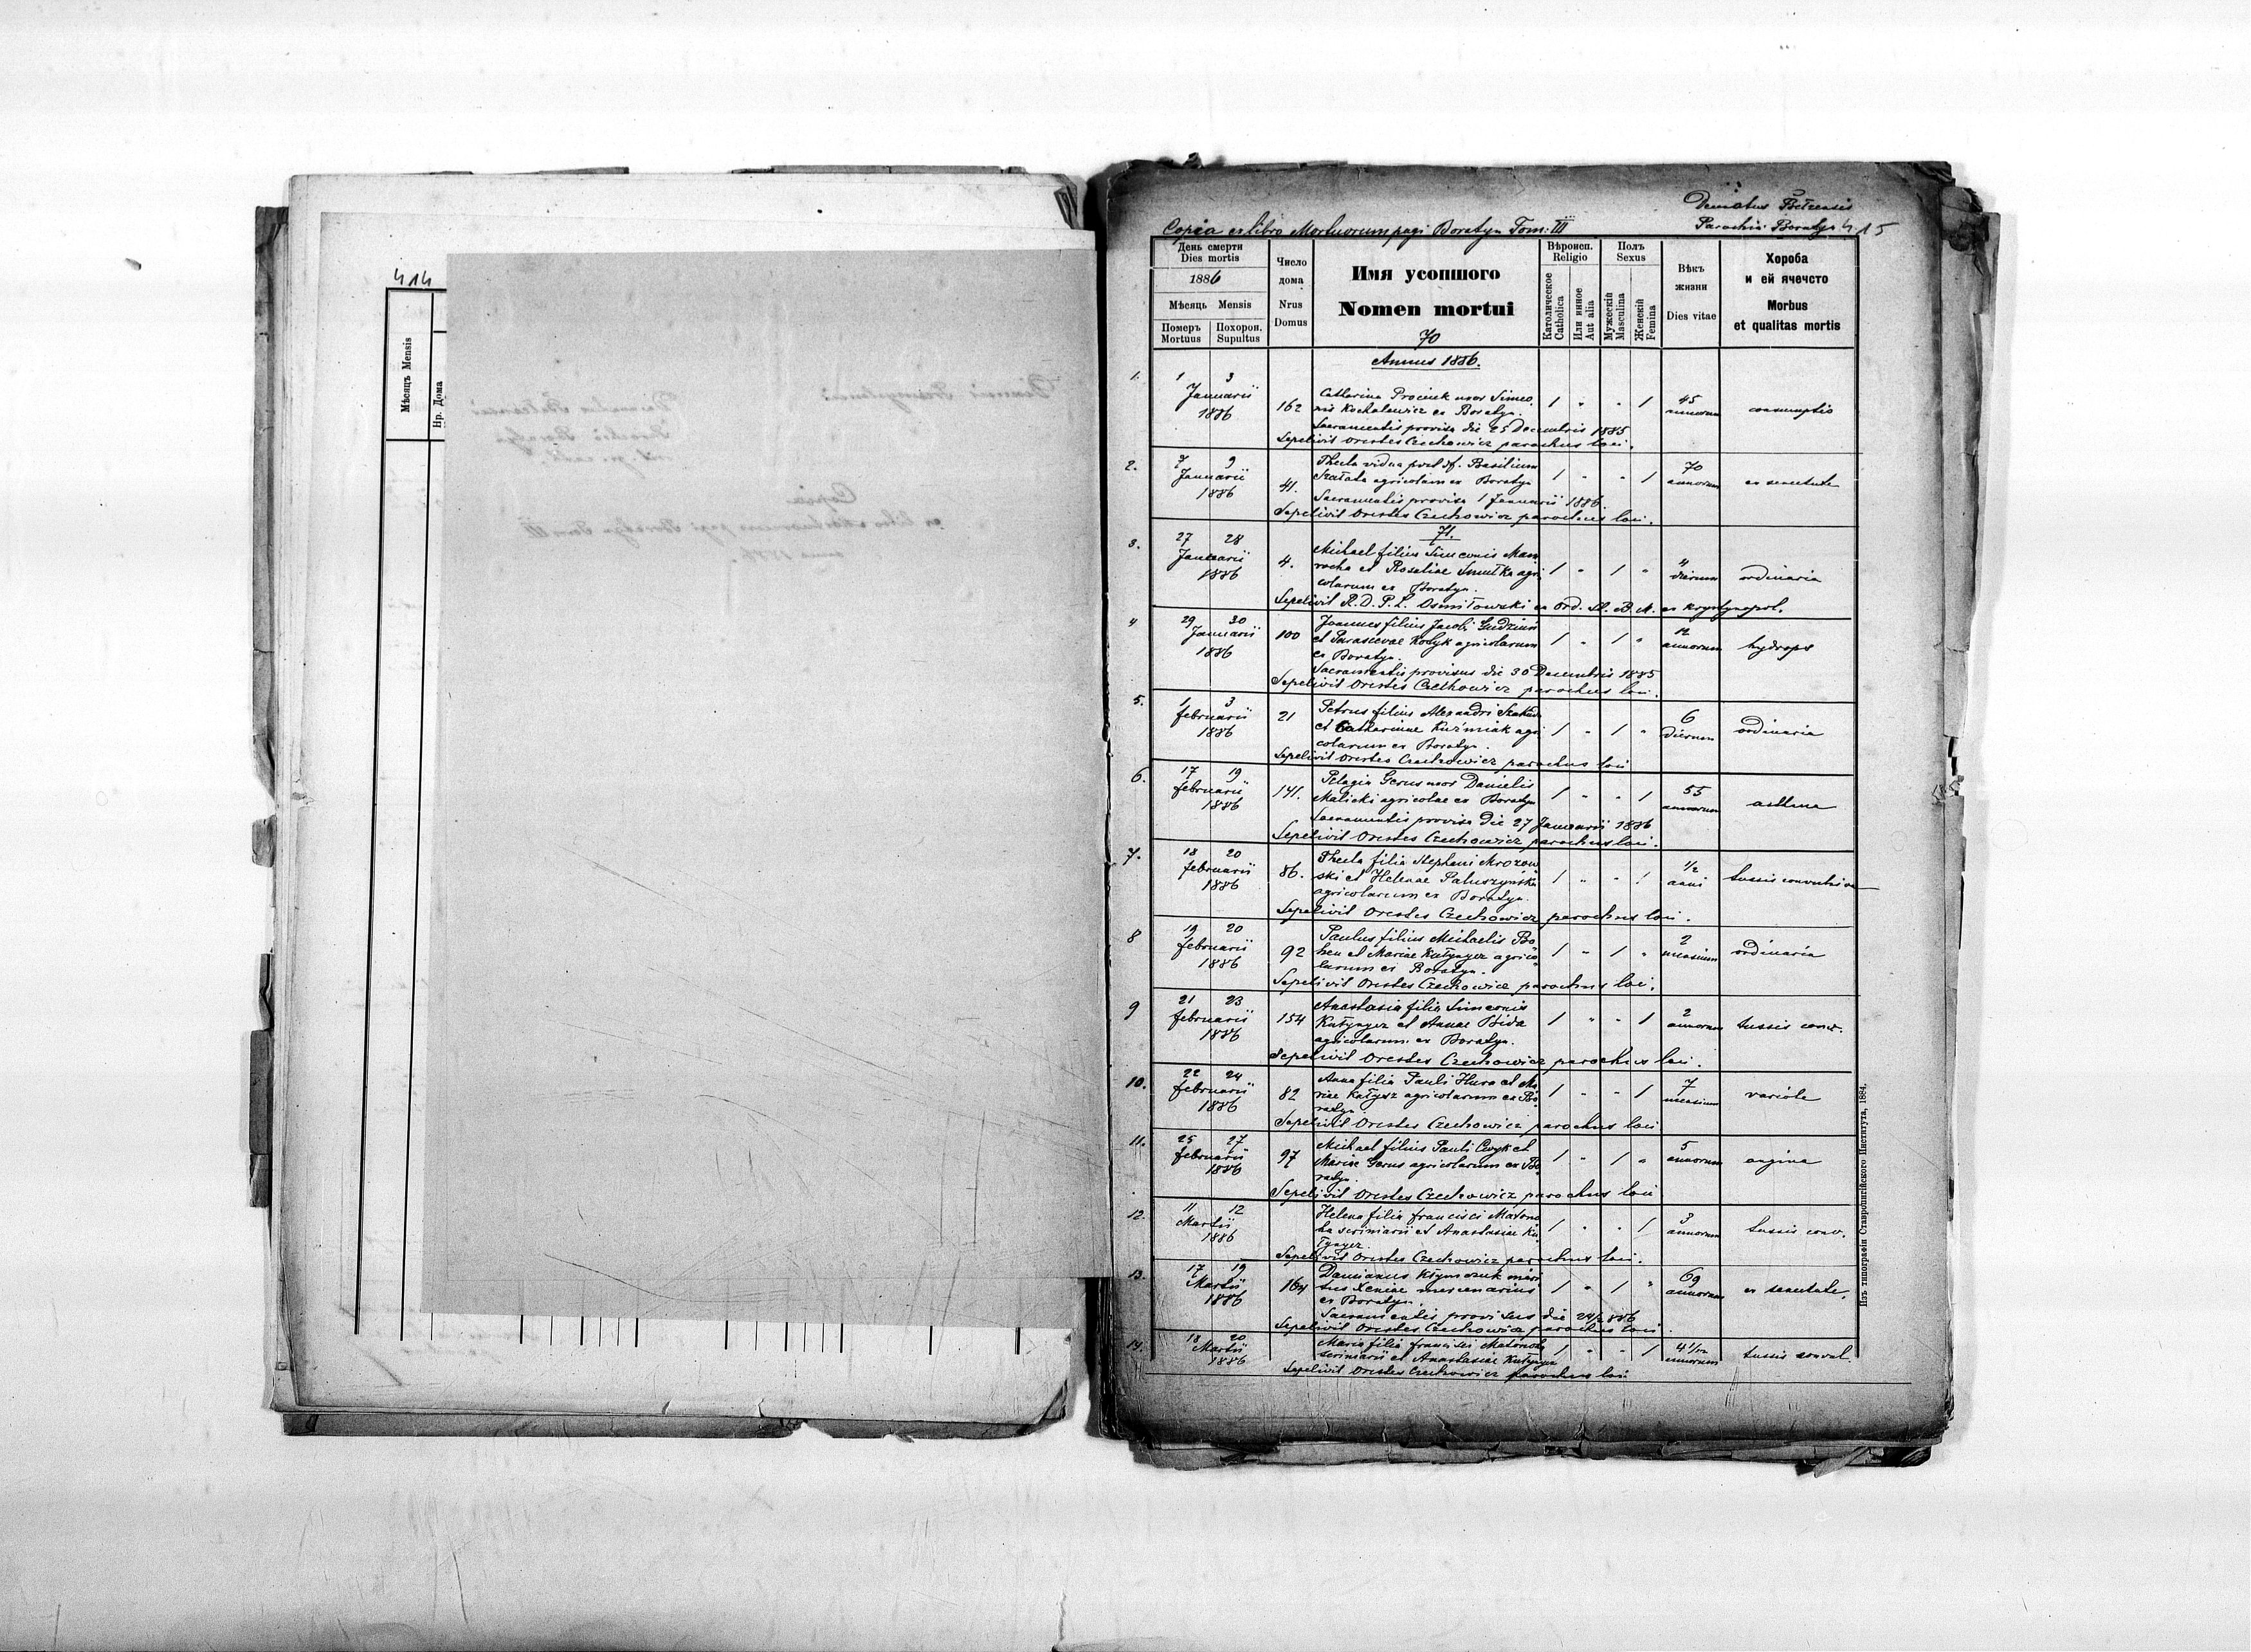 414
Мѣсяцъ Mensis
Нр. Дома
Decanatus Bełzensis
Parochia Boratyn 415
Copia ex libro Mortuorum pagi Boratyn Tom: III
День смерти
Dies mortis
1886
Мѣсяць Mensis
Померъ Похорон.
Mortuus Supultus
Число
дома
Nrus
Domus
Имя усопшого
Nomen mortui
70
Вѣроисп.
Religio
Католическое
Catholica
Или инное
Aut alia
Полъ
Sexus
Мужескій
Masculina
Женскій
Femina
Вѣкъ
жизни
Dies vitae
Хороба
и ей ячечсто
Morbus
et qualitas mortis
Annus 1886.
1. 1 3
Januarii
1886
162
Catharina Prociuk uxor Simeo
nis Kochalewicz ex Boratyn.
1 " " 1
45
annorum
consumptio
Sacramentis provisa die 25 Decembris 1885
Sepelivit Orestes Czechowicz parochus loci.
2. 7 9
Januarii
1886
41.
Thecla vidua post df. Basilium
agricolam ex Boratyn
1 " " 1
70
annorum
ex senectute
Sacramentis provisa 1 Januarii 1886
Sepelivit Orestes Czechowicz parochus loci.
71.
3. 27 28
Januarii
1886
4.
Michael filius Simeonis Maw
rocha et Rosaliae Smutka agri
colarum ex Boratyn.
1 " 1 "
4
dierum
ordinaria
Sepelivit R. D. P. L. Osmiłowski ex Ord. St. B. M. ex Krystynopol.
4 29 30
Januarii
1886
100
Joannes filius Jacobi
et Parascevae Kotyk agricolarum
ex Boratyn.
1 " 1 "
12
annorum
hydrops
Sacramentis provisus die 30 Decembris 1885
Sepelivit Orestes Czechowicz parochus loci.
5. 1 3
februarii
1886
21
Petrus filius Alexandri
et Catharinae Kuźmiak agri
colarum ex Boratyn.
1 " 1 "
6
dierum
ordinaria
Sepelivit Orestes Czechowicz parochus loci
6. 17 19
februarii
1886
141.
Pelagia Gerus uxor Danielis
Malicki agricolae ex Boratyn
1 " " 1
55
annorum
asthma
Sacramentis provisa die 27 Januarii 1886
Sepelivit Orestes Czechowicz parochus loci.
7. 18 20
februarii
1886
86.
Thecla filia Stephani Mrozow
ski et Helenae Paluszyńska
agricolarum ex Boratyn.
1 " " 1
1/2
anni
tussis convulsiva
Sepelivit Orestes Czechowicz parochus loci.
8 19 20
februarii
1886
92
Paulus filius Michaelis Bo
hen et Mariae Kułynycz agrico
larum ex Boratyn.
1 " 1 "
2
mensium
ordinaria
Sepelivit Orestes Czechowicz parochus loci.
9 21 23
februarii
1886
154
Anastasia filia Simeonis
Kułynycz et Annae Bida
agricolarum ex Boratyn.
1 " " 1
2
annorum
tussis conv.
Sepelivit Orestes Czechowicz parochus loci.
10. 22 24
februarii
1886
82
Anna filia Pauli Hura et Ma
riae agricolarum ex Bo
ratyn.
1 " " 1
7
mensium
variole
Sepelivit Orestes Czechowicz parochus loci
11. 25 27
februarii
1886
97
Michael filius Pauli Cwyk et
Mariae Gerus agricolarum ex Bo
ratyn.
1 " 1 "
5
annorum
angina
Sepelivit Orestes Czechowicz parochus loci
12. 11 12
Martii
1886
Helena filia francisci Matono
ha scriniarii et Anastasiae Ku
łynycz.
1 " " 1
3
annorum
tussis conv.
Sepelivit Orestes Czechowicz parochus loci.
13. 17 19
Martii
1886
164
Damianus Kłymczuk mari
tus Xeniae mercenarius
ex Boratyn.
1 " 1 "
69
annorum
ex senectute.
Sacramentis provisus die 24/2 886
Sepelivit Orestes Czechowicz parochus loci.
14. 18 20
Martii
1886
Maria filia francisci Matonoha
scriniarii et Anastasiae Kułynycz
1 " " 1
4 1/12
annorum
tussis conval.
Sepelivit Orestes Czechowicz parochus loci
Изъ типографіи Ставропигійского Института, 1884.